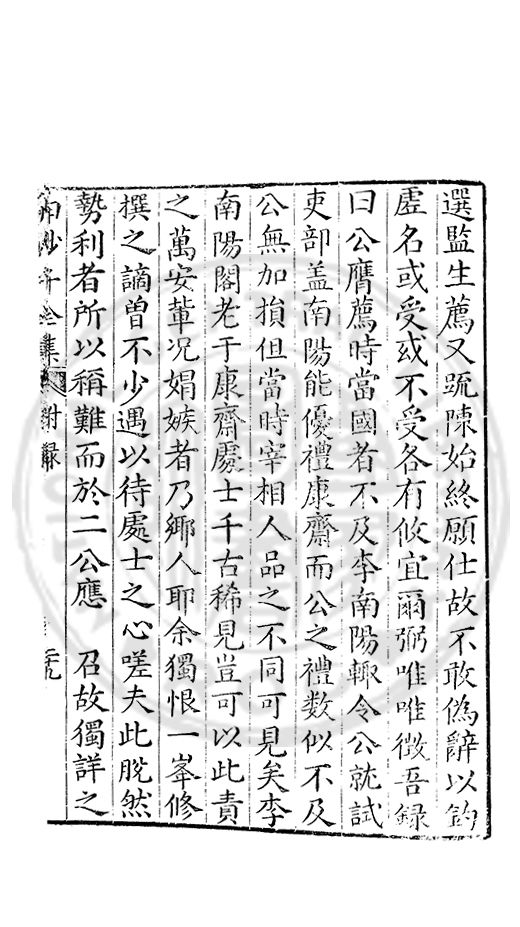 選監生薦又䟽陳始終願仕故不敢偽辭以釣
虛名或受或不受各有攸宜爾弼唯唯微吾録
曰公膺薦時當國者不及李南陽輙令公就試
吏部盖南陽能優禮康齋而公之禮数似不及
公無加損但當時宰相人品之不同可見矣李
南陽閣老于康齋處士千古稀見豈可以此責
之萬安軰况娼嫉者乃鄉人耶余獨恨一峯修
撰之謫曽不少遇以待處士之心嗟夫此脫然
勢利者所以稱難而於二公應 召故獨詳之
全集 附録